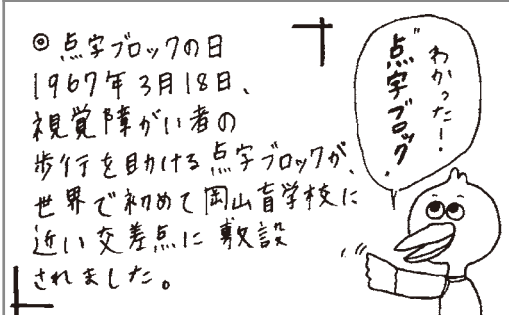 ◎点字ブロックの日
1967年3月18日、
視覚障がい者の
歩行を助ける点字ブロックが、
世界で初めて岡山盲学校に
近い交差点に敷設
されました。
わかった!
"点字ブロック"